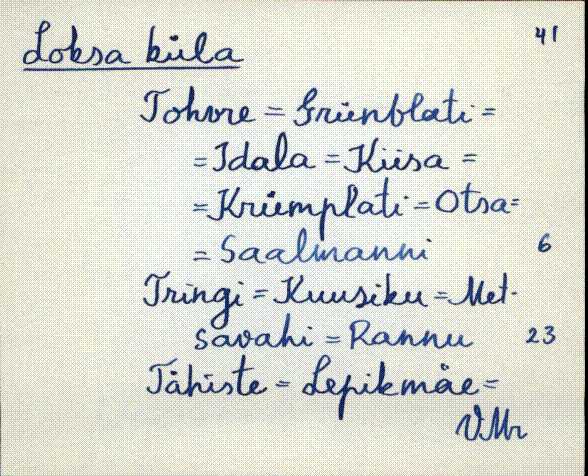 Loksa küla 41
Tohvre = Grünblati =
= Idala = Kiisa =
= Krümplati = Otsa =
= Saalmanni 6
Tringi = Kuusiku = Met-
savahi = Rannu 23
Tähiste = Lepikmäe =
VMr